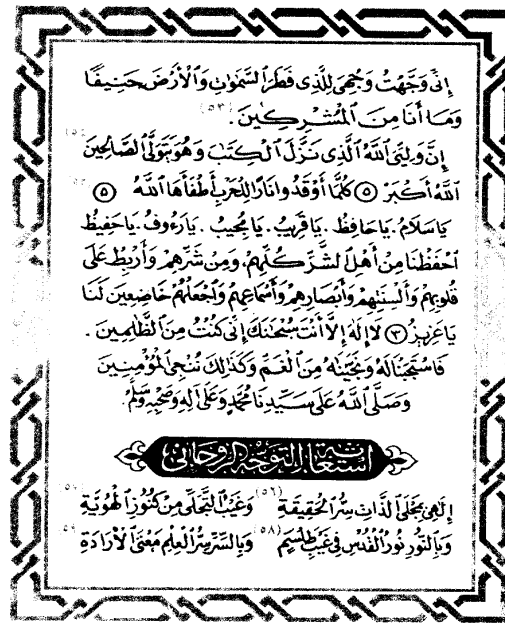 إِنِّى وَجَّهْتُ وَجْهِىَ لِلَّذِى فَطَرَ السَّمٰوَاتِ وَالْأَرْضَ حَنِيفًا
وَمَا أَنَا مِنَ الْمُشْرِكِينَ. (٥٣)
إِنَّ وَلِيِّىَ اللّٰهُ الَّذِى نَزَّلَ الْكِتٰبَ وَهُوَ يَتَوَلَّى الصَّالِحِينَ
اللّٰهُ أَكْبَرُ (٥) كُلَّمَا أَوْقَدُوا نَارًا لِلْحَرْبِ أَطْفَأَهَا اللّٰهُ (٥)
يَا سَلَامُ. يَا حَافِظُ. يَا قَرِيبُ. يَا مُجِيبُ. يَا رَءُوفُ. يَا حَفِيظُ
احْفَظْنَا مِنْ أَهْلِ الشَّرِّ كُلِّهِمْ، وَمِنْ شَرِّهِمْ وَارْبِطْ عَلَى
قُلُوبِهِمْ وَأَلْسِنَتِهِمْ وَأَبْصَارِهِمْ وَأَسْمَاعِهِمْ وَاجْعَلْهُمْ خَاضِعِينَ لَنَا
يَا عَزِيزُ (٣) لَا إِلٰهَ إِلَّا أَنْتَ سُبْحٰنَكَ إِنِّى كُنْتُ مِنَ الظّٰلِمِينَ.
فَاسْتَجَبْنَا لَهُ وَنَجَّيْنٰهُ مِنَ الْغَمِّ وَكَذٰلِكَ نُنْجِى الْمُؤْمِنِينَ
وَصَلَّى اللّٰهُ عَلَى سَيِّدِنَا مُحَمَّدٍ وَعَلَى آلِهِ وَصَحْبِهِ وَسَلَّمَ.
التوجه الروحانى
إِلٰهِى بِمَجْلَى الذَّاتِ سِرِّ الْحَقِيقَةِ (٥٦) وَغَيْبِ التَّجَلِّى مِنْ كُنُوزِ الْهُوِيَّةِ
وَبِالنُّورِ نُورِ الْقُدْسِ فِى غَيْبِ طَلْسَمٍ (٥٨) وَبِالسِّرِّ سِرِّ الْعِلْمِ مَعْنَى الْإِرَادَةِ (٥٩)